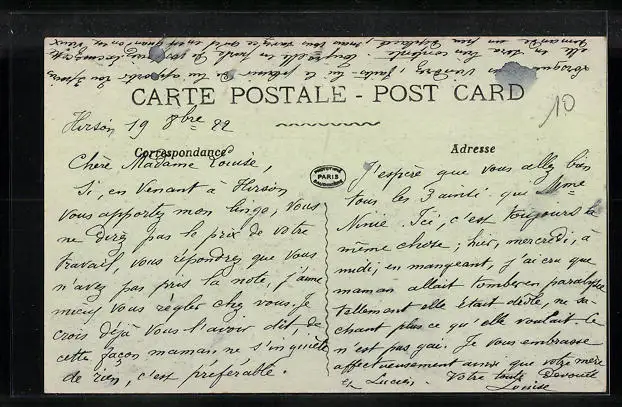 CARTE POSTALE - POST CARD
10
Hirson 19 8bre 22
Correspondance
Adresse
Chère Madame Louise,
Si, en venant à Hirson
vous apportez mon linge, vous
ne direz pas le prix de votre
travail, vous répondrez que vous
n'avez pas pris la note, j'aime
mieux vous régler chez vous. Je
crois déjà vous l'avoir dit, de
cette façon maman ne s'inquiète
de rien, c'est préférable.
PARIS
J'espère que vous allez bien
tous les 3 ainsi que Mme
Ninie. Ici, c'est toujours la
même chose ; hier, mercredi, à
midi, en mangeant, j'ai cru que
maman allait tomber en paralysie
tellement elle était drôle, ne sa-
chant plus ce qu'elle voulait. Ce
n'est pas gai. Je vous embrasse
affectueusement ainsi que votre mère
et Lucien. Votre toute Dévouée
Louise
lorsque vous viendrez, le plaisir de lui apporter
elle en sera bien contente